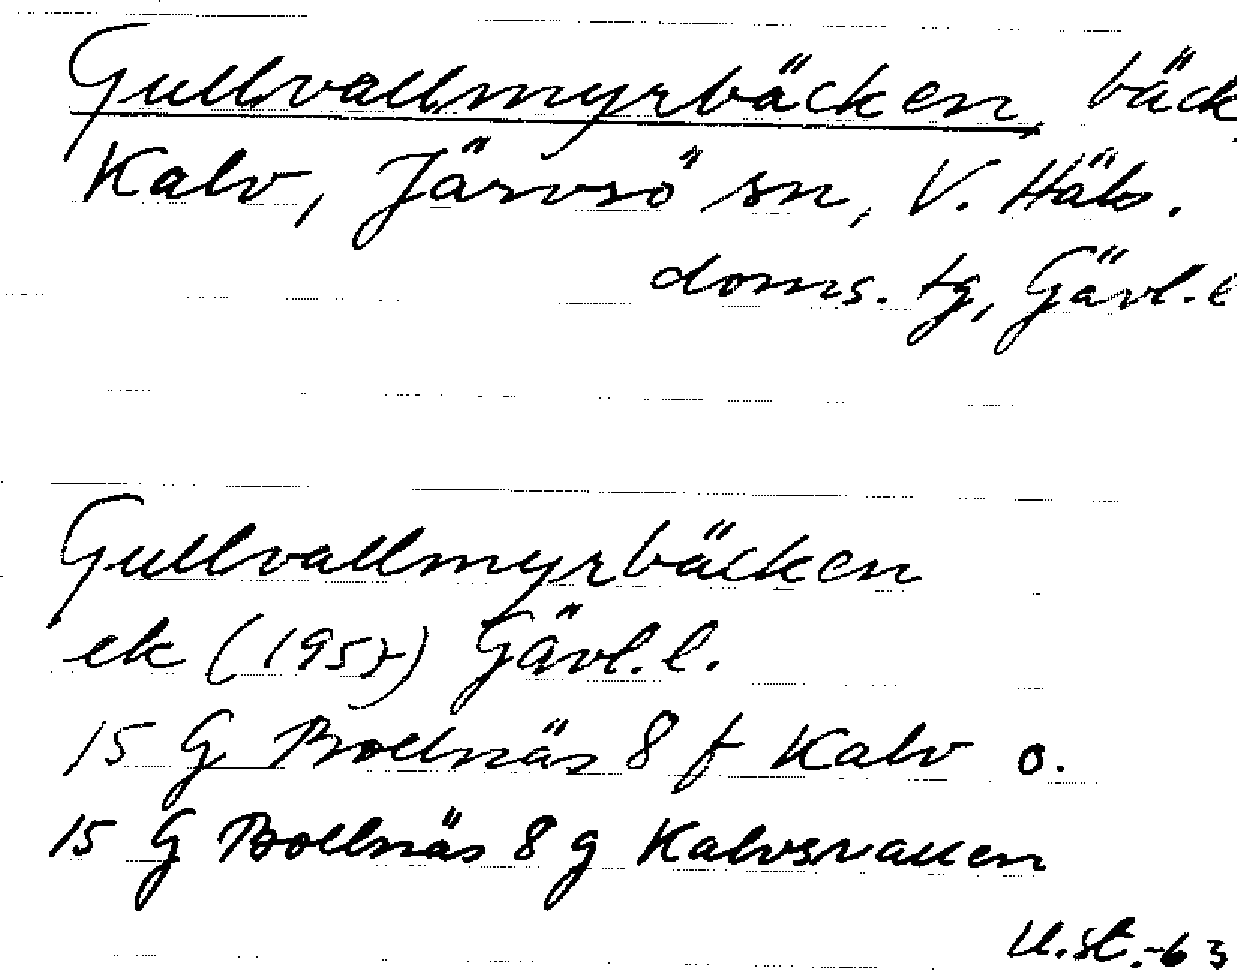 Gullvallmyrbäcken, bäck,
Kalv, Järvsö sn, V. Häls.
doms. tg, Gävl. l
Gullvallmyrbäcken
ek (1957) Gävl. l.
15 G Bollnäs 8 f Kalv o.
15 G Bollnäs 8 g
U.St.-63